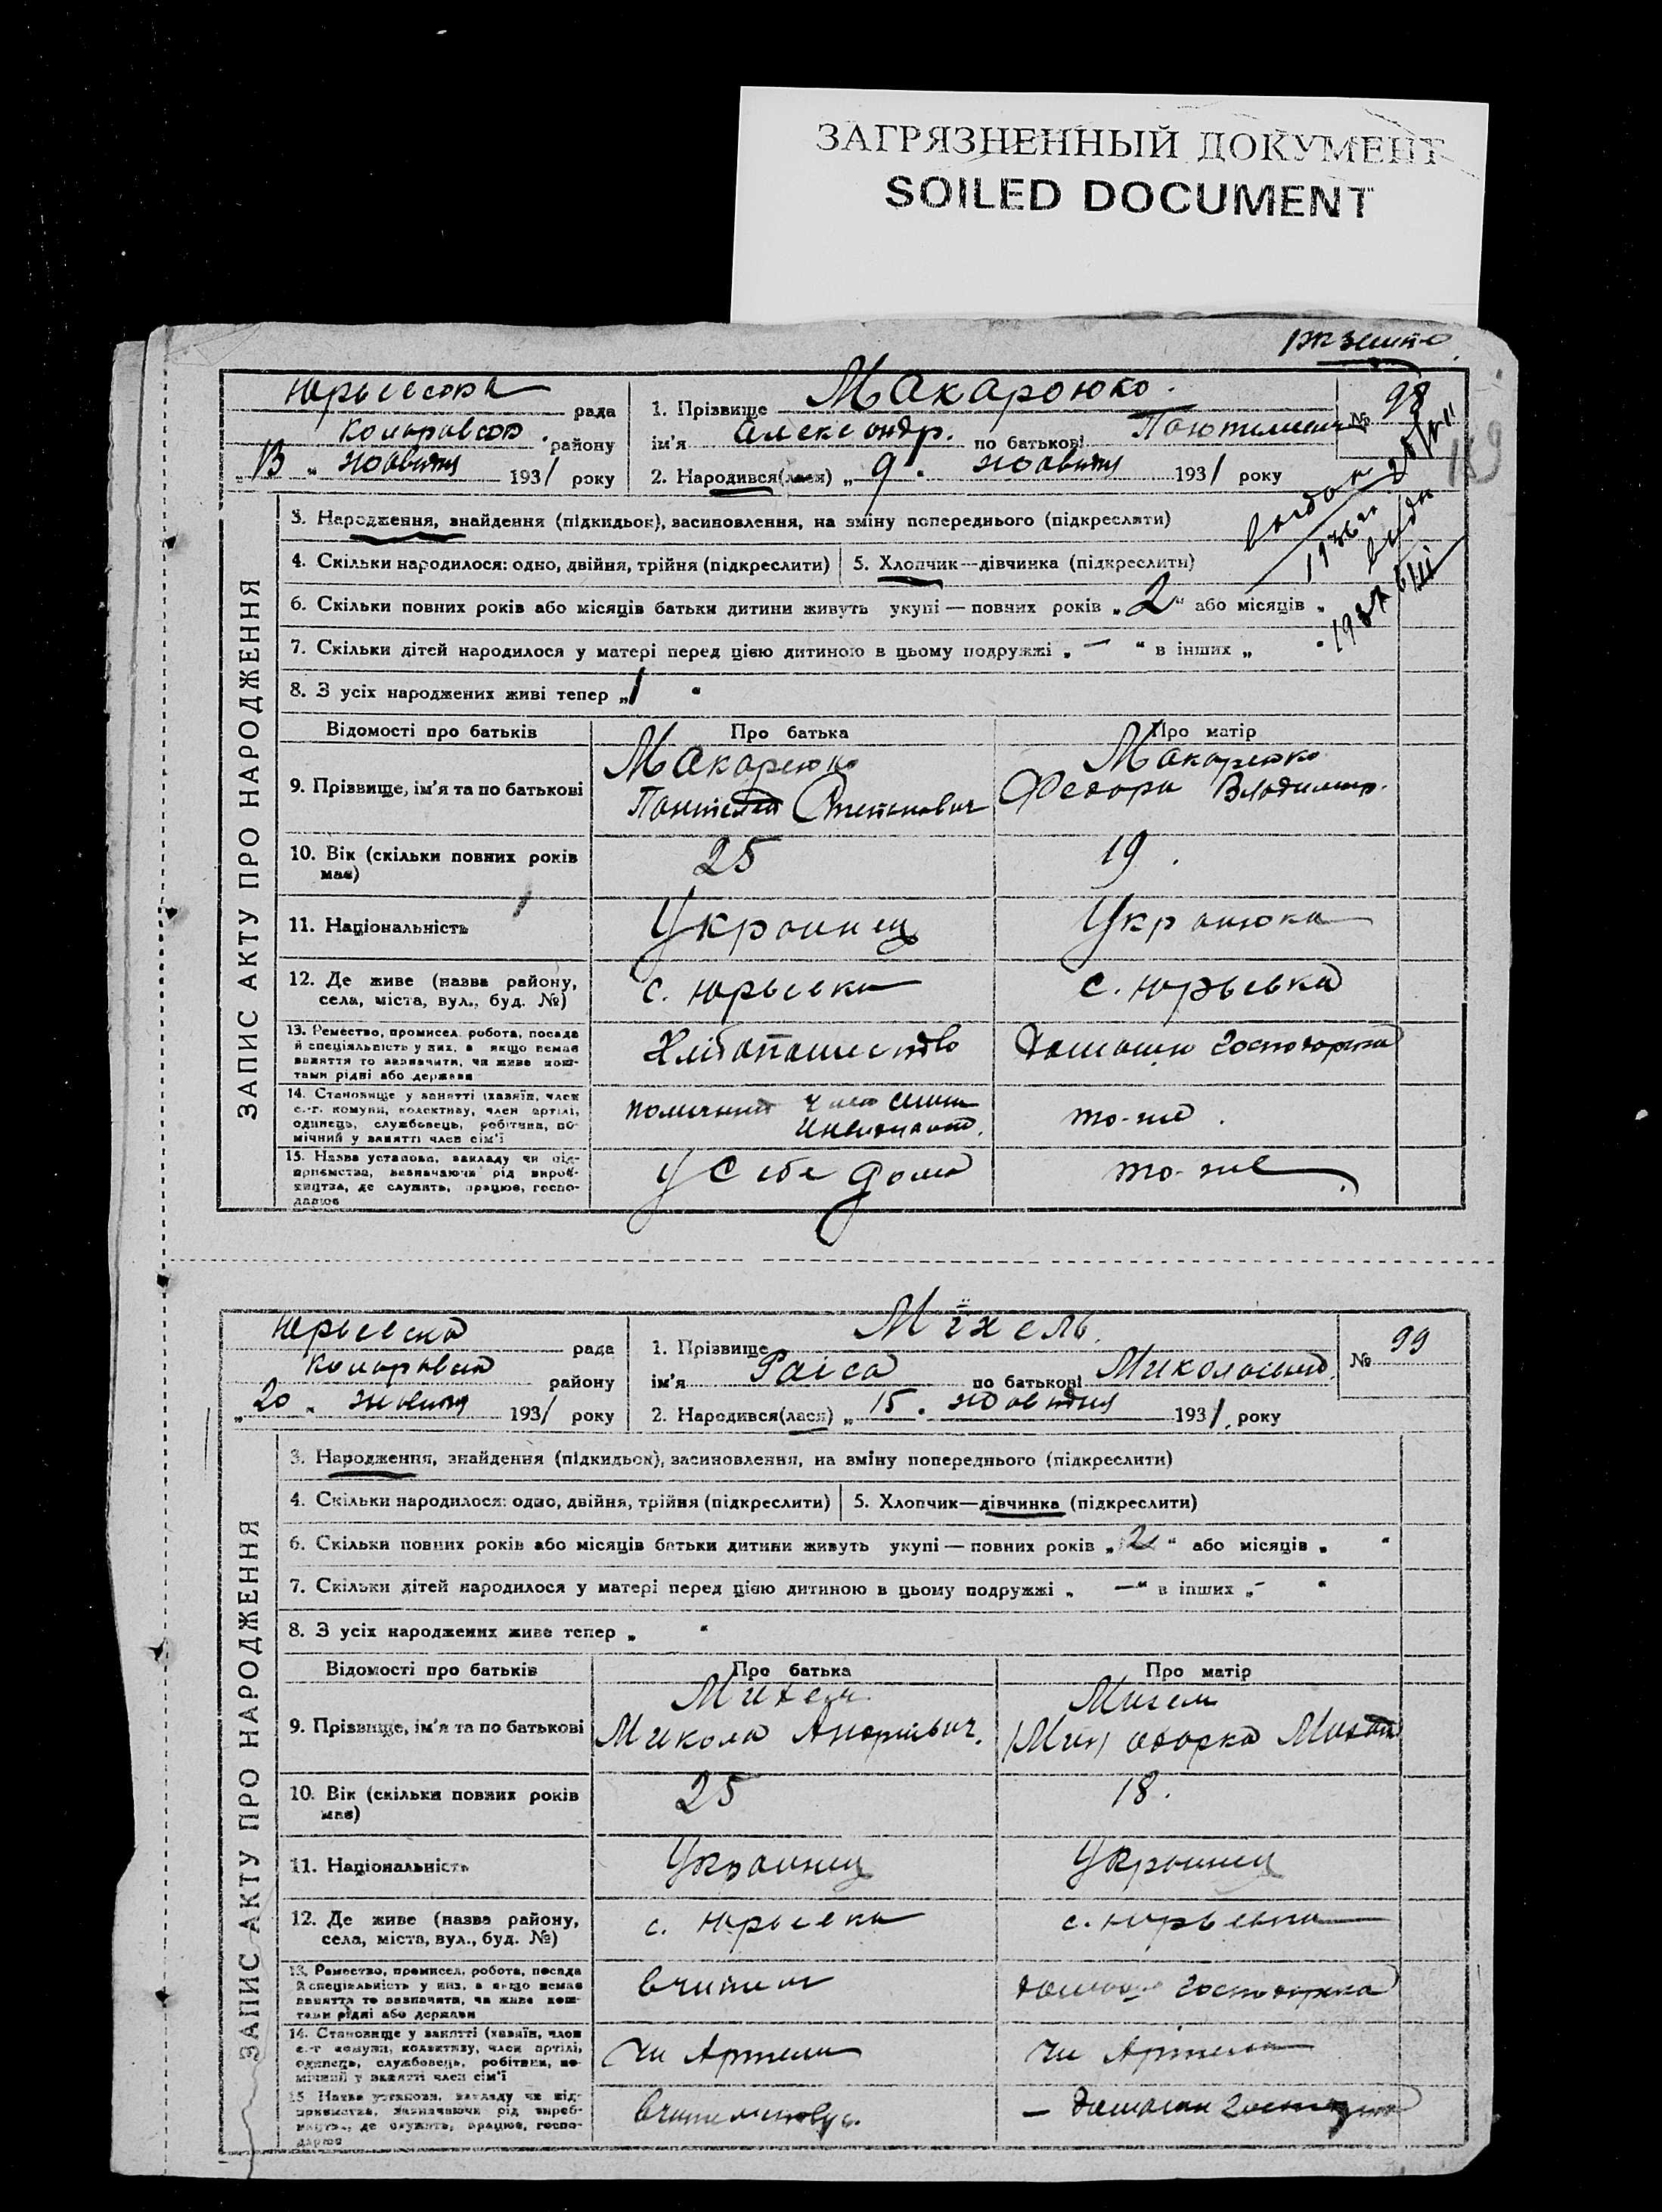 ЗАГРЯЗНЕННЫЙ ДОКУМЕНТ
SOILED DOCUMENT
рада
району
1931 року
1. Прізвище Макаренко
№ 98
ім'я Александр. по батькові
2. Народився(лася) „ 9 " жовтня 1931 року
ЗАПИС АКТУ ПРО НАРОДЖЕННЯ
3. Народження, знайдення (підкидьок), засиновлення, на зміну попереднього (підкреслити)
4. Скільки народилося: одно, двійня, трійня (підкреслити)
5. Хлопчик—дівчинка (підкреслити)
6. Скільки повних років або місяців батьки дитини живуть укупі — повних років „ 2 " або місяців „
7. Скільки дітей народилося у матері перед цією дитиною в цьому подружжі „ — " в інших „ "
8. З усіх народжених живі тепер „ 1 "
Відомості про батьків
Про батька
Про матір
9. Прізвище, ім'я та по батькові
Макаренко
Степанович
Макаренко
Федора Владимир.
10. Вік (скільки повних років має)
25
19.
11. Національність
Украинец
Украинка
12. Де живе (назва району, села, міста, вул., буд. №)
с. Юрьевка
с. Юрьевка
13. Ремество, промисел, робота, посада й спеціяльність у них, а якщо немає заняття то зазначити, чи живе коштами рідні або держави
Хлібопашество
14. Становище у занятті (хазяїн, член с.-г. комуни, колективу, член артілі, одинець, службовець, робітник, помічний у занятті член сім'ї
то-же.
15. Назва установи, закладу чи підприємства, зазначаючи рід виробництва, де служить, працює, господарює
у себе дома
то-же
рада
району
20 " жовтня 1931 року
1. Прізвище Міхель.
№ 99
ім'я Раіса по батькові
2. Народився(лася) „ 15 " жовтня 1931 року
ЗАПИС АКТУ ПРО НАРОДЖЕННЯ
3. Народження, знайдення (підкидьок), засиновлення, на зміну попереднього (підкреслити)
4. Скільки народилося: одно, двійня, трійня (підкреслити)
5. Хлопчик—дівчинка (підкреслити)
6. Скільки повних років або місяців батьки дитини живуть укупі — повних років „ 2 " або місяців „ "
7. Скільки дітей народилося у матері перед цією дитиною в цьому подружжі „ — " в інших „ - "
8. З усіх народжених живе тепер „ "
Відомості про батьків
Про батька
Про матір
9. Прізвище, ім'я та по батькові
Михель
Микола Андрійович.
10. Вік (скільки повних років має)
25
18.
11. Національність
Украинец
Украинец
12. Де живе (назва району, села, міста, вул., буд. №)
с. Юрьевка
с. Юрьевка
13. Ремество, промисел, робота, посада й спеціяльність у них, а якщо немає заняття то зазначити, чи живе коштами рідні або держави
вчитель
14. Становище у занятті (хазяїн, член с.-г. комуни, колективу, член артілі, одинець, службовець, робітник, помічний у занятті член сім'ї
чл Артели
чл Артели
15. Назва установи, закладу чи підприємства, зазначаючи рід виробництва, де служить, працює, господарює